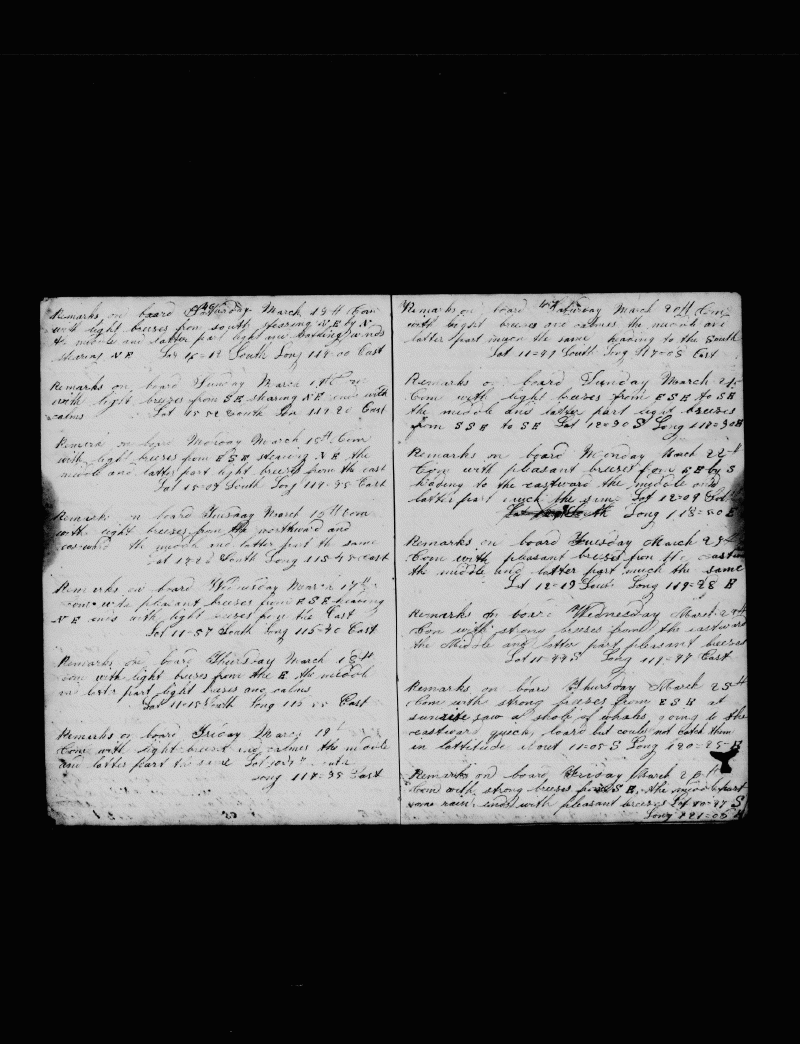 46
Remarks on board Saturday March 13th Com
with light breezes from South stearing N E by N
the middle and latter part light and baffling winds
stearing N E Lat 15=12 South Long 119=00 East
Remarks on board Sunday March 14th
with light breezes from S E stearing N E ends with
calms Lat 15 52 South Lon 119 20 East
Remarks on board Monday March 15th Com
with light breezes from E S E stearing N E the
middle and latter part light breezes from the east
Lat 15=07 South Long 119=35 East
Remarks on board Tuesday March 16th Com
with light breezes from the northward and
eastward the middle and latter part the same
Lat South Long 115=45 East
Remarks on board Wednesday March 17th
coms with pleasant breezes from E S E heading
N E ends with light breezes from the East
Lat 11=57 South Long 115=40 East
Remarks on board Thursday March 18th
com with light breezes from the E the middle
and latter part light breezes and calms
Lat 11=15 South Long East
Remarks on board Friday March 19th
Com with light breezes and calmes the middle
and latter part the same Lat
Long 117=35 East
47
Remarks on board Saturday March 20th Com
with light breezes and calmes the middle and
latter part much the same heading to the South
Lat 11=41 South Long 117=05 East
Remarks on board Sunday March 21st
Com with light breezes from E S E to S E
the middle and latter part light breezes
from S S E to S E Lat 12=30 S Long 117=30 E
Remarks on board Monday March 22th
Com with pleasant breezes from S E by S
heading to the eastward the middle and
latter part much the same Lat 12=09
Long 118=50 E
Remarks on board Tuesday March 23th
Com with pleasant breezes from the eastward
the middle and latter part much the same
Lat 12=19 South Long 119=28 E
Remarks on board Wednesday March 24th
Com with strong breezes from the eastward
the Middle and latter part pleasant breezes
Lat 11=44 S Long 119=47 East
Remarks on board Thursday March 25th
Com with strong breezes from E S E at
sunrise saw a shole of whales going to the
eastward quick, loard but could not catch them
in lattitude about 11=05 S Long 120=25 E
Remarks on board Friday March 26th
Com with strong breezes from S E, the middle part
some rain, ends with pleasant breezes Lat 10=47 S
Long 121=05 E